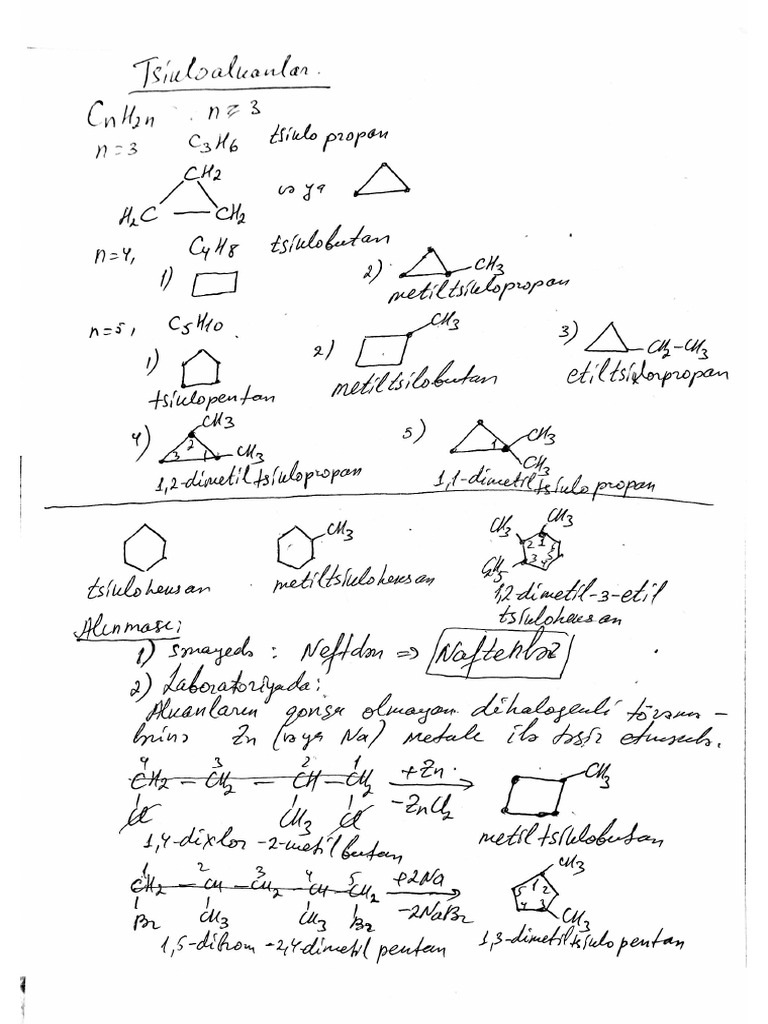 Tsikloalkanlar.
CnH2n . n ≥ 3
n=3 C3H6 tsiklo propan
CH2
H2C — CH2 və ya
n=4, C4H8 tsiklobutan
1) 2) CH3
metiltsiklopropan
n=5, C5H10
1) 2) CH3 3) CH2-CH3
tsiklopentan metiltsilobutan etiltsiklorpropan
4) CH3 3 2 1 CH3 5) 1 CH3 CH3
1,2-dimetiltsiklopropan 1,1-dimetiltsiklopropan
CH3 CH3 CH3 C2H5 1 2 3 4 5 6
tsikloheksan metiltsikloheksan 1,2-dimetil-3-etil
tsikloheksan
Alınması:
1) Sənayedə : Neftdən => Naftenlər
2) Laboratoriyada:
Alkanların qonşu olmayan dihalogenli törəmə-
lərinə Zn (və ya Na) metalı ilə təsir etməklə.
4 3 2 1
CH2 - CH2 - CH - CH2 +Zn -ZnCl2 CH3
Cl CH3 Cl
1,4-dixlor-2-metilbutan metiltsiklobutan
1 2 3 4 5
CH2 - CH - CH2 - CH - CH2 +2Na -2NaBr CH3 5 1 2 4 3 CH3
Br CH3 CH3 Br
1,5-dibrom-2,4-dimetil pentan 1,3-dimetiltsiklo pentan